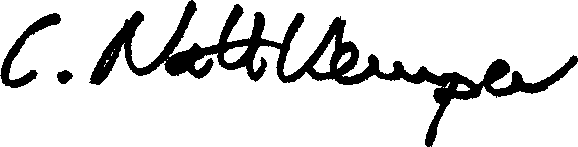 C. Nattkemper